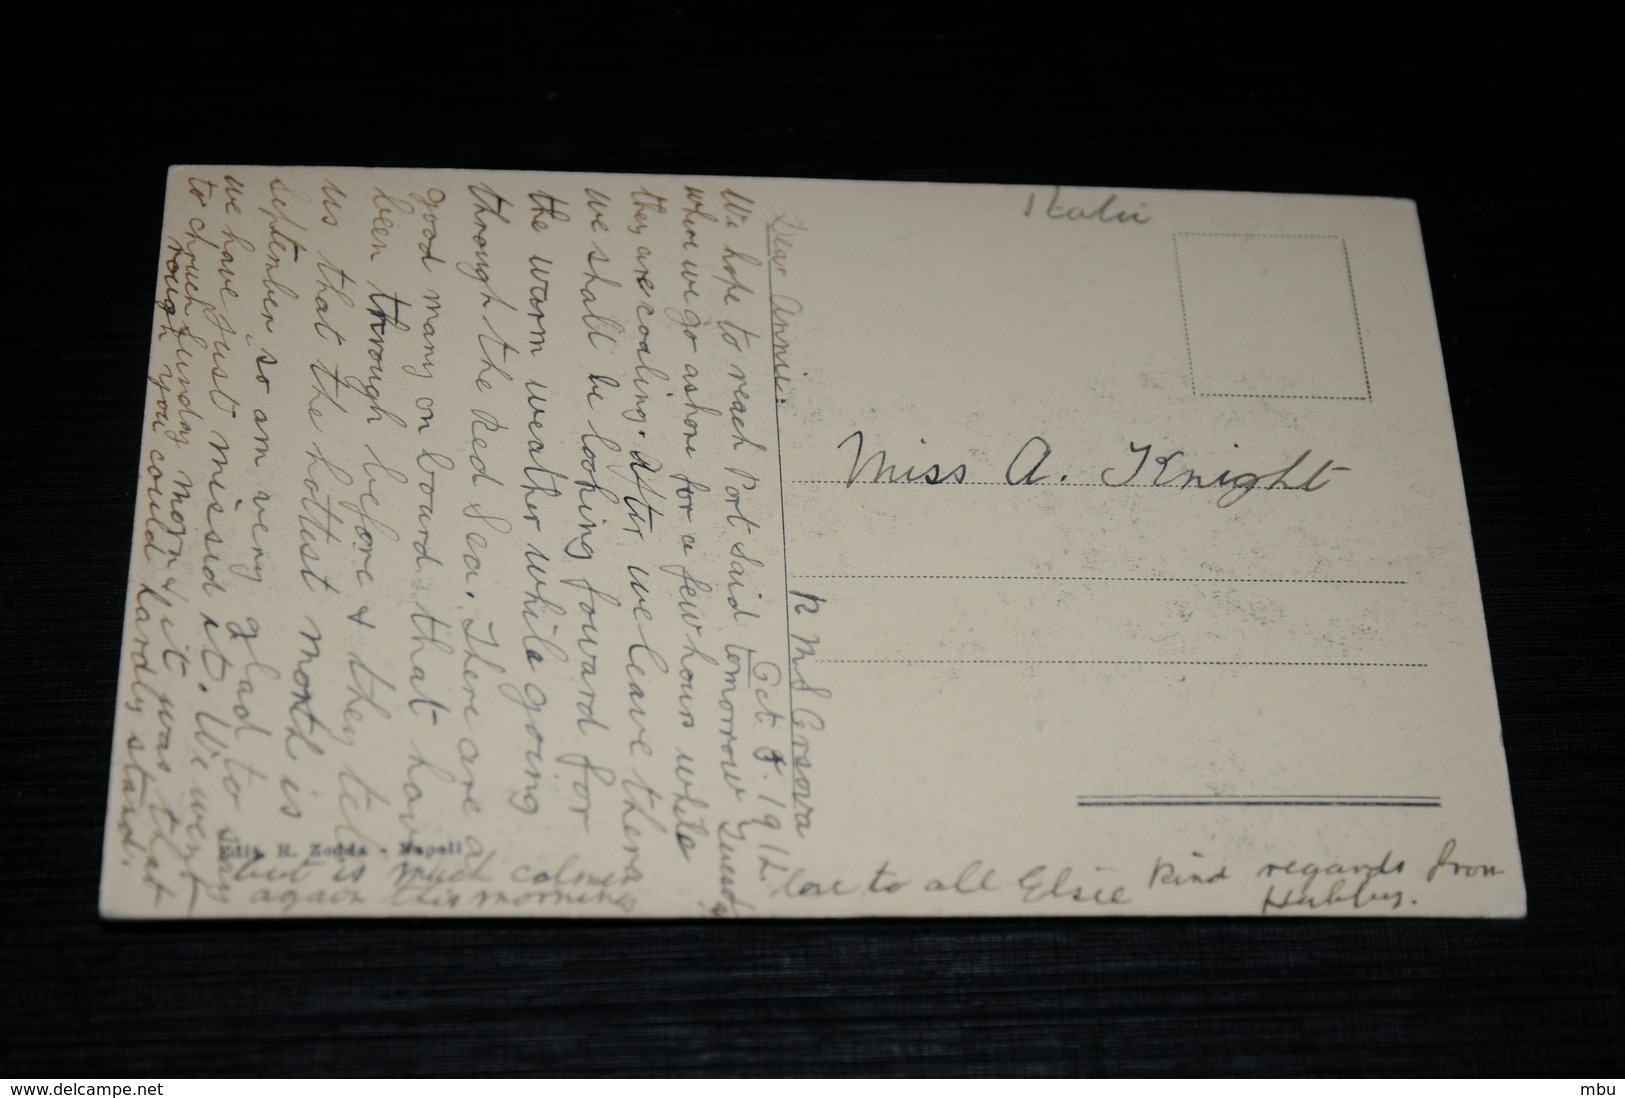 Italië
R M S Orsova
Oct 5. 1912.
Dear Annie.
We hope to reach Port Said tomorrow Sunday
where we go ashore for a few hours while
they are coaling. After we leave there
we shall be looking forward for
the warm weather while going
through the Red Sea. There are a
good many on board that have
been through before & they tell
us that the hottest month is
September so am very glad to say
we have just missed it. We went
to chruch Sunday morn & it was that
rough you could hardly stand.
but is much calmer
again this morning
love to all Elsie
Kind regards from
Hubby.
Miss A. Knight
Edit. R. Zedda - Napoli
www.delcampe.net
mbu